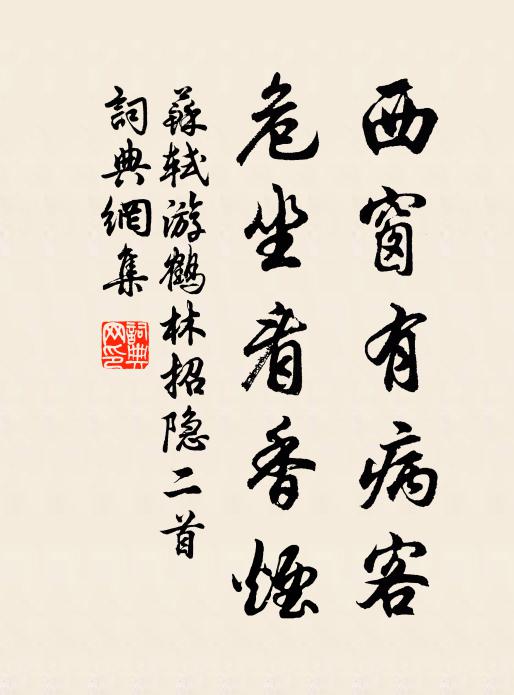 西窗有病客
危坐看香煙
蘇軾游鶴林招隐二首
詞典網集
詞典
网印